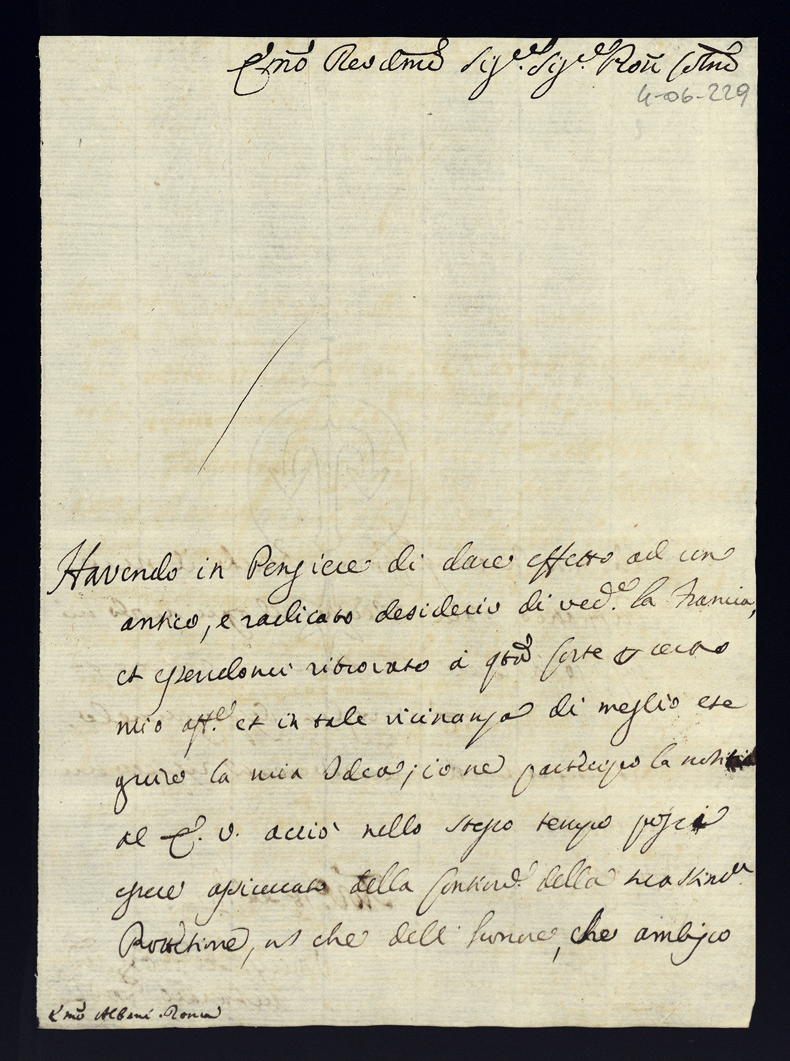 E.mo Rev.dmo Sig.re Sig.re Pron Col.mo
4-06-229
Havendo in Pensiere di dare effetto ad un
antico, e radicato desiderio di ved.e la Francia,
et essendomi ritrovato à q.ta Corte
mio aff.e et in tale vicinanza di meglio ese
guire la mia Idea; io ne partecipo la notitia
al E. V. acciò nello stesso tempo possi
essere assicurato della continu.e della sua stim.a
Protetione, che dell' honore, che ambisco
E.mo Albani. Roma